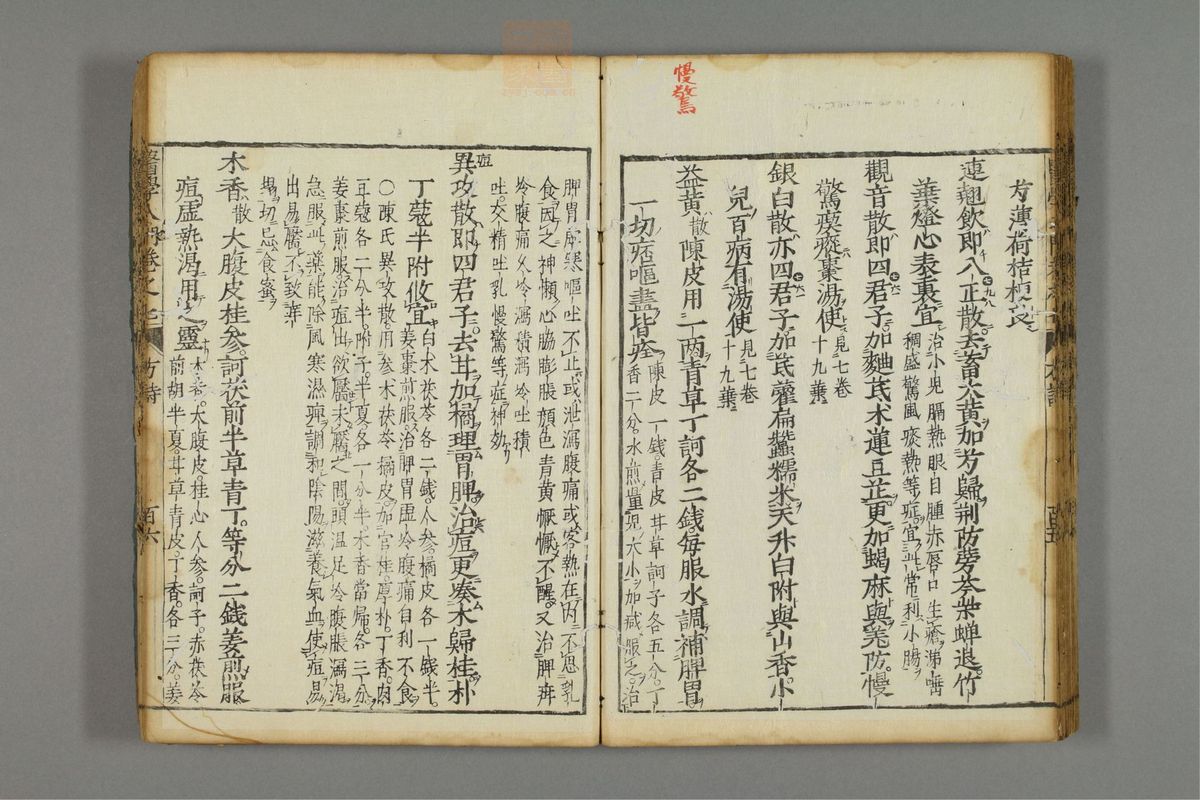 慢驚
芳薄荷桔梗良
連翹飲即八正散去蓄大黄加芳歸荆防蒡芩柴蟬退竹
葉燈心表裏宜
治小兒膈熱眼目腫赤唇口生瘡涕唾
稠盛驚風痰熱等症宜此常利小腸
觀音散即四君子加麯芪朮蓮豆芷更加蝎麻與羗防慢
驚瘈瘲棗湯使
見七卷
十九葉
銀白散亦四君子加芪藿扁蠶糯米天升白附與山香小
兒百病有湯使
見七卷
十九葉
益黄散陳皮用一両青草丁訶各二錢毎服水調補脾胃
一切疳嘔盡皆痊
陳皮一錢青皮甘草訶子各五分丁
香二分水煎量兒大小加减服之治
脾胃虛寒嘔吐不止或泄瀉腹痛或客熱在内不思乳
食因之神懶心脇膨脹顔色青黄懨懨不醒又治脾疼
冷腹痛久冷瀉積瀉冷吐積
吐交精吐乳慢驚等症神効
痘
異攻散即四君子去甘加橘理胃脾治痘更凑木歸桂朴
丁蔻半附攸宜
白木茯苓各二錢人參橘皮各一錢半
姜棗煎服治脾胃虛冷腹痛自利不食
○陳氏異攻散用參木茯苓橘皮加官桂厚朴丁香肉
豆蔻各二分半附子半夏各一分半木香當歸各二分
姜棗煎服治痘出欲靨未靨之間頭温足冷腹脹瀉渴
急服此藥能除風寒濕痺調和陰陽滋養氣血使痘易
出易靨不致痒
塌切忌食蜜
木香散大腹皮桂參訶茯前半草青丁等分二錢姜煎服
痘虛熱渴用之靈
木香大腹皮桂心人參訶子赤茯苓
前胡半夏甘草青皮丁香各三分姜
醫學入門卷之七
方詩
百六